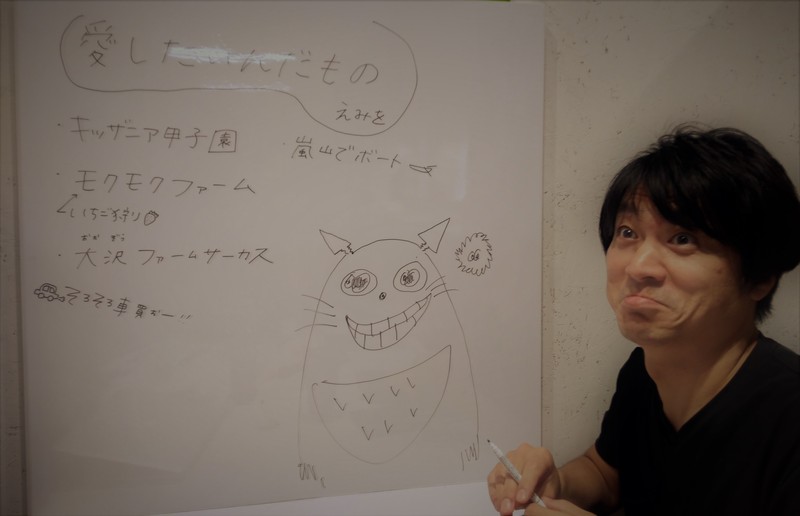 愛した んだもの
えみを
・キッザニア甲子園
・嵐山でボート
・モクモクファーム
いちご狩り
おおぞう
・大沢ファームサーカス
そろそろ車買お—‥